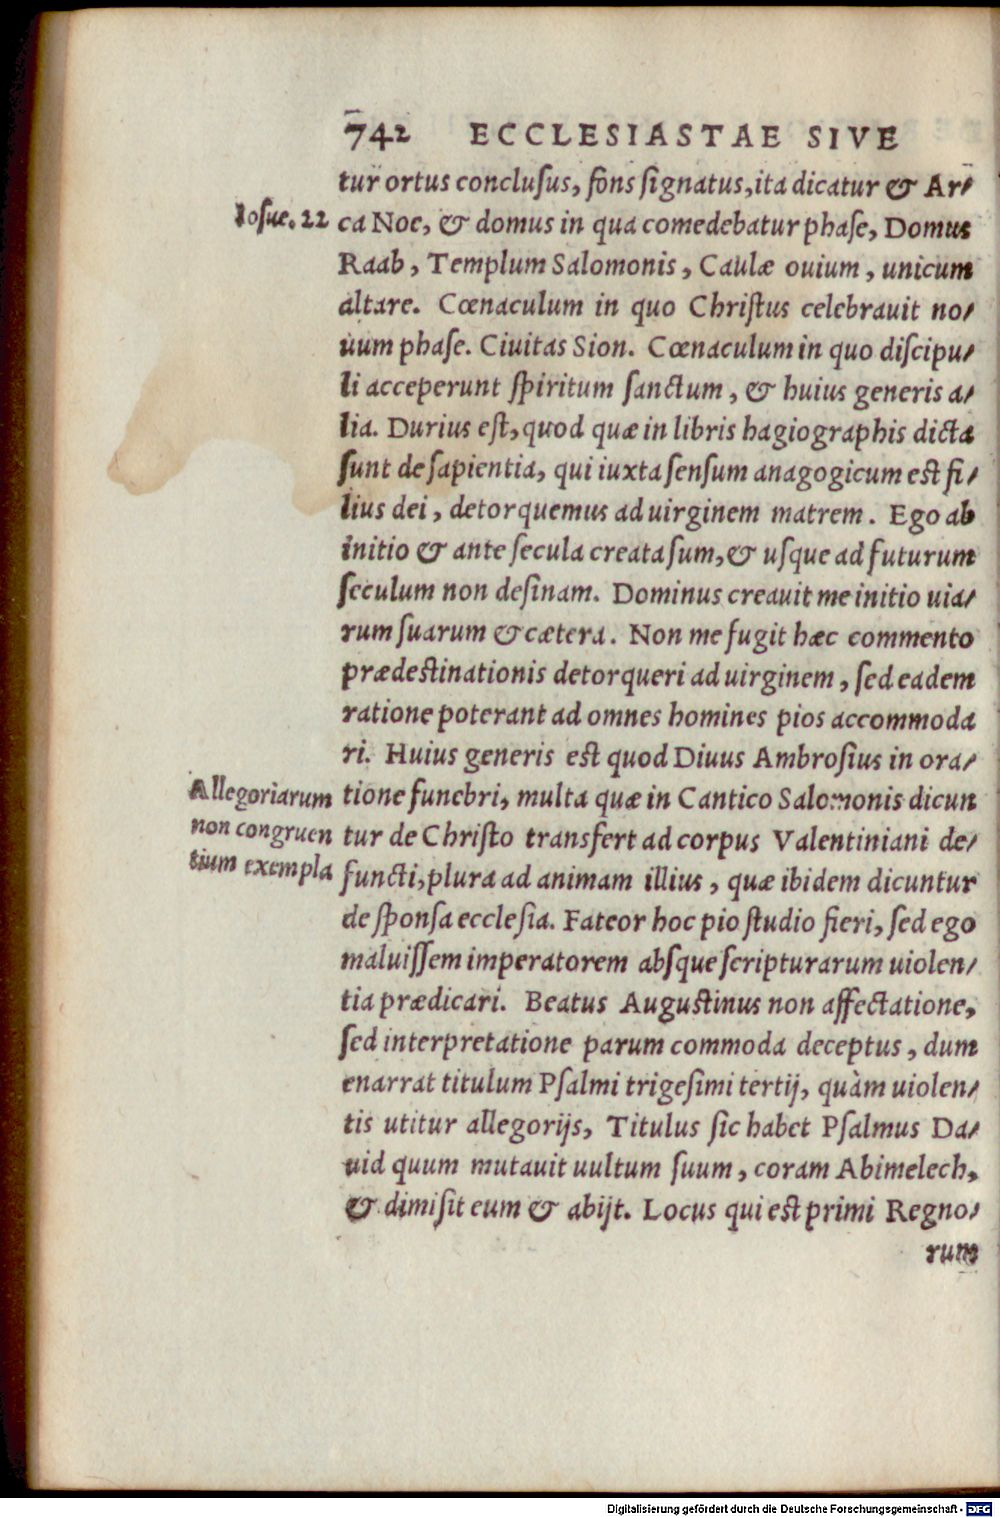 742 ECCLESIASTAE SIVE
tur ortus conclusus, fons signatus, ita dicatur & Ar/
Iosue. 22
ca Noe, & domus in qua comedebatur phase, Domus
Raab, Templum Salomonis, Caulæ ouium, unicum
altare. Cœnaculum in quo Christus celebrauit no/
uum phase. Ciuitas Sion. Cœnaculum in quo discipu/
li acceperunt spiritum sanctum, & huius generis a/
lia. Durius est, quod quæ in libris hagiographis dicta
sunt de sapientia, qui iuxta sensum anagogicum est fi/
lius dei, detorquemus ad uirginem matrem. Ego ab
initio & ante secula creata sum, & usque ad futurum
seculum non desinam. Dominus creauit me initio uia/
rum suarum & cætera. Non me fugit hæc commento
prædestinationis detorqueri ad uirginem, sed eadem
ratione poterant ad omnes homines pios accommoda
ri. Huius generis est quod Diuus Ambrosius in ora/
Allegoriarum
non congruen
tium exempla
tione funebri, multa quæ in Cantico Salomonis dicun
tur de Christo transfert ad corpus Valentiniani de/
functi, plura ad animam illius, quæ ibidem dicuntur
de sponsa ecclesia. Fateor hoc pio studio fieri, sed ego
maluissem imperatorem absque scripturarum uiolen/
tia prædicari. Beatus Augustinus non affectatione,
sed interpretatione parum commoda deceptus, dum
enarrat titulum Psalmi trigesimi tertij, quàm uiolen/
tis utitur allegorijs, Titulus sic habet Psalmus Da/
uid quum mutauit uultum suum, coram Abimelech,
& dimisit eum & abijt. Locus qui est primi Regno/
rum
Digitalisierung gefördert durch die Deutsche Forschungsgemeinschaft - DFG